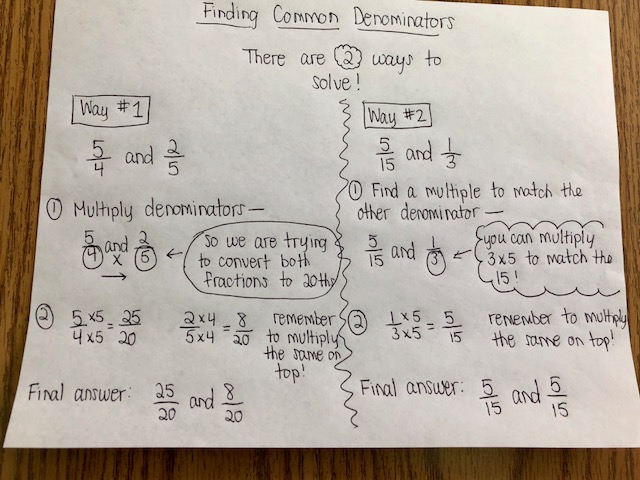 Finding Common Denominators
There are 2 ways to
solve!
Way #1
5/4 and 2/5
① Multiply denominators —
5/4 and 2/5
x
→
← so we are trying
to convert both
fractions to 20ths
② 5x5/4x5 = 25/20 2x4/5x4 = 8/20
remember
to multiply
the same on
top!
Final answer: 25/20 and 8/20
Way #2
5/15 and 1/3
① Find a multiple to match the
other denominator —
5/15 and 1/3
← you can multiply
3x5 to match the
15!
② 1x5/3x5 = 5/15
remember to multiply
the same on top!
Final answer: 5/15 and 5/15